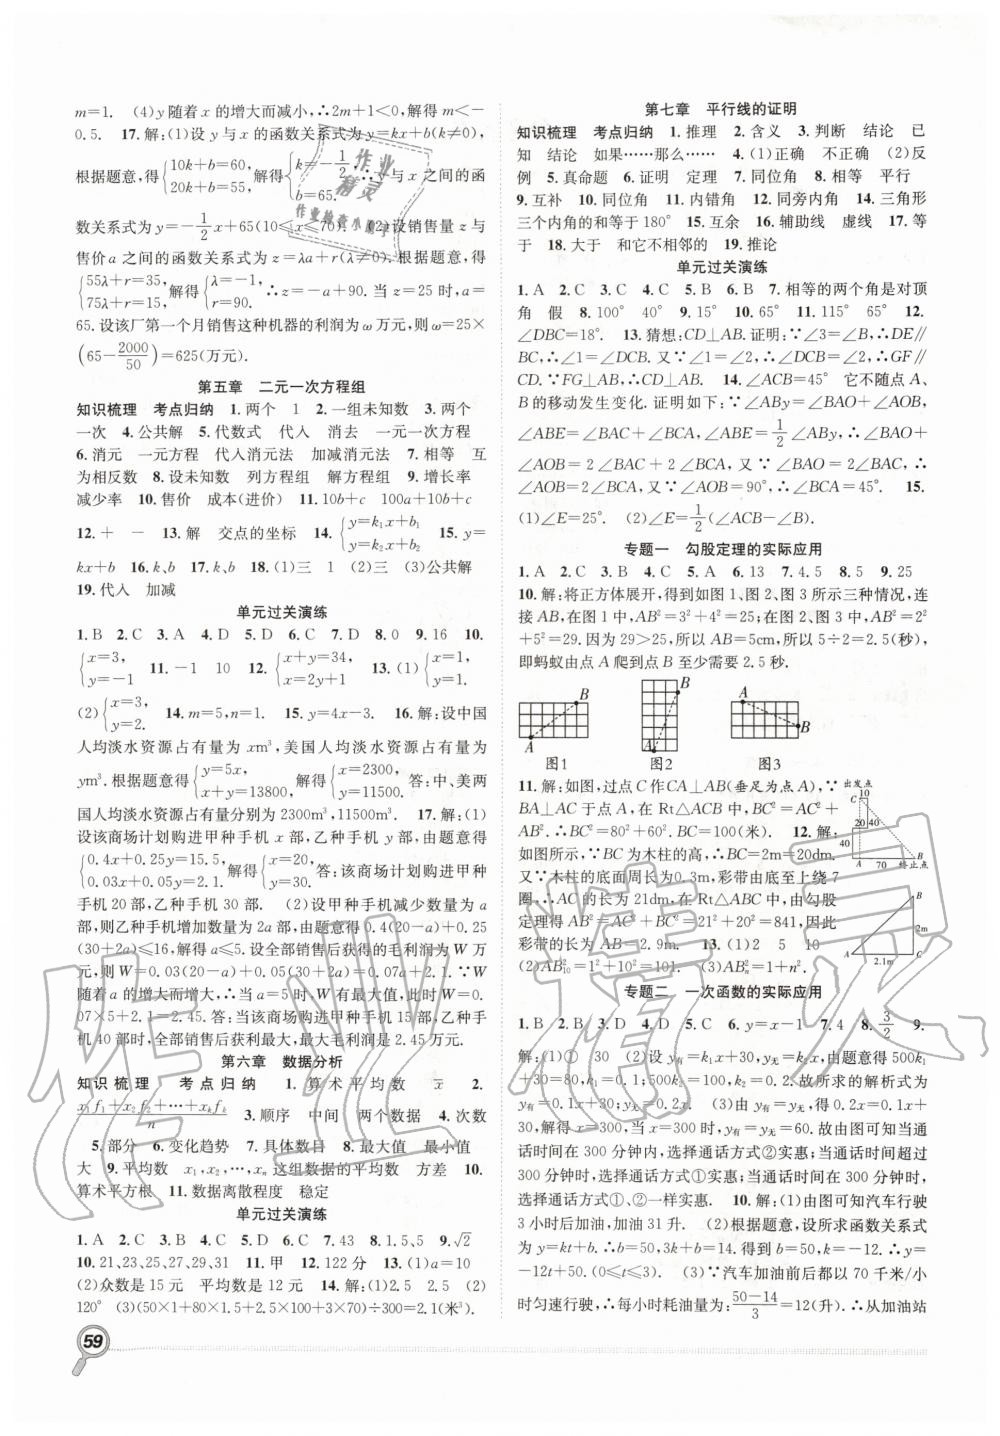 m=1.　(4)y随着x的增大而减小,∴2m+1<0,解得m<-
0.5.　17.解:(1)设y与x的函数关系式为y=kx+b(k≠0),
根据题意,得{10k+b=60, 20k+b=55,解得{k=-1/2, b=65. ∴y与x之间的函
数关系式为y=-1/2x+65(10≤x≤70).　(2)设销售量z与
售价a之间的函数关系式为z=λa+r(λ≠0).根据题意,得
{55λ+r=35, 75λ+r=15.解得{λ=-1, r=90. ∴z=-a+90.当z=25时,a=
65.设该厂第一个月销售这种机器的利润为ω万元,则ω=25×
(65-2000/50)=625(万元).
第五章　二元一次方程组
知识梳理　考点归纳　1.两个　1　2.一组未知数　3.两个
一次　4.公共解　5.代数式　代入　消去　一元一次方程
6.消元　一元方程　代入消元法　加减消元法　7.相等　互
为相反数　8.设未知数　列方程组　解方程组　9.增长率
减少率　10.售价　成本(进价)　11.10b+c　100a+10b+c
12.+　-　13.解　交点的坐标　14.{y=k₁x+b₁ y=k₂x+b₂　15.y=
kx+b　16.k、b　17.k、b　18.(1)三　1　(2)三　(3)公共解
19.代入　加减
单元过关演练
1.B　2.C　3.A　4.D　5.D　6.C　7.D　8.0　9.16　10.
{x=3, y=-1　11.-1　10　12.{x+y=34, x=2y+1　13.(1){x=1, y=1.
(2){x=3, y=2.　14.m=5,n=1.　15.y=4x-3.　16.解:设中国
人均淡水资源占有量为xm³,美国人均淡水资源占有量为
ym³.根据题意得{y=5x, x+y=13800,解得{x=2300, y=11500.答:中、美两
国人均淡水资源占有量分别为2300m³,11500m³.　17.解:(1)
设该商场计划购进甲种手机x部,乙种手机y部,由题意得
{0.4x+0.25y=15.5, 0.03x+0.05y=2.1.解得{x=20, y=30.答:该商场计划购进甲种
手机20部,乙种手机30部.　(2)设甲种手机减少数量为a
部,则乙种手机增加数量为2a部,由题意得0.4(20-a)+0.25
(30+2a)≤16,解得a≤5.设全部销售后获得的毛利润为W万
元,则W=0.03(20-a)+0.05(30+2a)=0.07a+2.1.∵W
随着a的增大而增大,∴当a=5时,W有最大值,W最大=0.
07×5+2.1=2.45.答:当该商场购进甲种手机15部,乙种手机
40部时,全部销售后获利最大,最大毛利润为2.45万元.
第六章　数据分析
知识梳理　考点归纳　1.算术平均数　x̄　2.
(x₁f₁+x₂f₂+…+xₖfₖ)/n　3.顺序　中间　两个数据　4.次数
5.部分　6.变化趋势　7.具体数目　8.最大值　最小值
大　9.平均数　x₁,x₂,…,xₙ这组数据的平均数　方差　10.
算术平方根　11.数据离散程度　稳定
单元过关演练
1.A　2.C　3.B　4.C　5.C　6.D　7.43　8.1.5、5　9.√2
10.21、23、25、27、29、31　11.甲　12.122分　13.(1)a=10
(2)众数是15元　平均数是12元　14.解:(1)2.5　2.5　(2)
120°　(3)(50×1+80×1.5+2.5×100+3×70)÷300=2.1(米³)
59
第七章　平行线的证明
知识梳理　考点归纳　1.推理　2.含义　3.判断　结论　已
知　结论　如果……那么……　4.(1)正确　不正确　(2)反
例　5.真命题　6.证明　定理　7.同位角　8.相等　平行
9.互补　10.同位角　11.内错角　12.同旁内角　14.三角形
三个内角的和等于180°　15.互余　16.辅助线　虚线　17.等
于　18.大于　和它不相邻的　19.推论
单元过关演练
1.A　2.C　3.C　4.C　5.B　6.B　7.相等的两个角是对顶
角　假　8.100°　40°　9.15°　10.65°　11.115°　65°　12.
∠DBC=18°.　13.猜想:CD⊥AB.证明:∵∠3=∠B,∴DE∥
BC,∴∠1=∠DCB.又∵∠1=∠2,∴∠DCB=∠2,∴GF∥
CD.∵FG⊥AB,∴CD⊥AB.　14.∠ACB=45°　它不随点A、
B的移动发生变化.证明如下:∵∠ABy=∠BAO+∠AOB,
∠ABE=∠BAC+∠BCA,∠ABE=1/2∠ABy,∴∠BAO+
∠AOB=2∠BAC+2∠BCA,又∵∠BAO=2∠BAC,∴
∠AOB=2∠BCA,又∵∠AOB=90°,∴∠BCA=45°.　15.
(1)∠E=25°.　(2)∠E=1/2(∠ACB-∠B).
专题一　勾股定理的实际应用
1.A　2.C　3.B　4.C　5.A　6.13　7.4.5　8.5　9.25
10.解:将正方体展开,得到如图1、图2、图3所示三种情况,连
接AB,在图1中,AB²=3²+4²=25;在图2、图3中,AB²=2²
+5²=29.因为29>25,所以AB=5cm,所以5÷2=2.5(秒),
即蚂蚁由点A爬到点B至少需要2.5秒.
B
A
图1
B
A
图2
A
B
图3
11.解:如图,过点C作CA⊥AB(垂足为点A),∵
BA⊥AC于点A,在Rt△ABC中,BC²=AC²+
AB².∴BC²=80²+60².BC=100(米).　12.解:
如图所示,∵BC为木柱的高,∴BC=2m=20dm.
又∵木柱的底面周长为0.3m,彩带由底层至上绕7
圈,∴AC的长为21dm,在Rt△ABC中,由勾股
定理得AB²=AC²+BC²=21²+20²=841,因此
彩带的长为AB=2.9m.　13.(1)2　5　10
(2)AB₁₀²=1²+10²=101.　(3)ABₙ²=1+n².
出发点
C 10
20 40
40
A 70 B
终止点
B
2m
A 2.1m C
专题二　一次函数的实际应用
1.B　2.B　3.D　4.C　5.C　6.y=x-1　7.4　8.3/2　9.
解:(1)①　30　(2)设y有=k₁x+30,y无=k₂x,由题意得500k₁
+30=80,500k₂=100.∴k₁=0.1,k₂=0.2.故所求的解析式为
y有=0.1x+30;y无=0.2x.　(3)由y有=y无,得0.2x=0.1x+
30,解得x=300;当x=300时,y有=y无=60.故由图可知当通
话时间在300分钟内,选择通话方式②实惠;当通话时间超过
300分钟时,选择通话方式①实惠;当通话时间在300分钟时,
选择通话方式①、②一样实惠.　10.解:(1)由图可知汽车行驶
3小时后加油,加油31升.　(2)根据题意,设所求函数关系式
为y=kt+b.∴b=50,3k+b=14.得到b=50,k=-12.∴y=
-12t+50(0≤t≤3).　(3)∵汽车加油前后都以70千米/小
时匀速行驶,∴每小时耗油量为(50-14)/3=12(升).∴从加油站
作业精灵